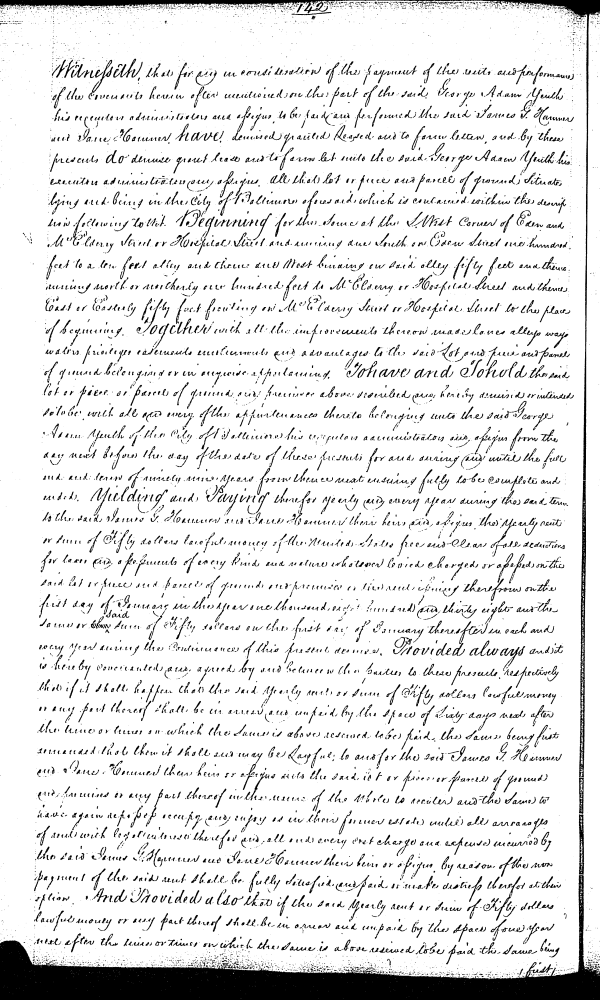 142
Witnesseth, that for and in consideration of the payment of the rents and performance
of the covenants herein after mentioned on the part of the said George Adam Youth
his executors administrators and assigns, to be paid and performed the said James G. Hamner
and Jane Hamner, have, demised granted leased and to farm letten, and by these
presents do demise grant lease and to farm let unto the said George Adam Youth his
executors administrators and assigns. All that lot or piece and parcel of ground situate
lying and being in the City of Baltimore aforesaid which is contained within the descrip
tion following to wit. Beginning for the same at the S. West Corner of Eden and
McElderry Street or Hospital Street and running due South on Eden Street one hundred
feet to a ten feet alley and thence due West binding on said alley fifty feet and thence
running north or northerly one hundred feet to McElderry or Hospital Street and thence
East or Easterly fifty feet fronting on McElderry Street or Hospital Street to the place
of beginning. Together with all the improvements thereon made lanes alleys ways
waters privileges easements emoluments and advantages to the said Lot and piece and parcel
of ground belonging or in anywise appertaining. To have and To hold the said
lot or piece or parcel of ground and premises above described and hereby demised or intended
so to be with all and every of the appurtenances thereto belonging unto the said George
Adam Youth of the City of Baltimore his executors administrators and assigns from the
day next before the day of the date of these presents for and during and until the full
end and term of ninety nine years from thence next ensuing fully to be complete and
ended. Yielding and Paying therefor yearly and every year during the said term
to the said James G. Hamner and Jane Hamner their heirs and assigns, the yearly rent
or sum of Fifty dollars lawful money of the United States free and clear of all deductions
for taxes and assessments of every kind and nature whatsoever levied charged or assessed on the
said lot or piece and parcel of ground and premises or the rent issuing therefrom on the
first day of January in the year one thousand eight hundred and thirty eight and the
same or said sum of Fifty dollars on the first day of January thereafter in each and
every year during the continuance of this present demise. Provided always and it
is hereby covenanted and agreed by and between the parties to these presents, respectively
that if it shall happen that the said yearly rent or sum of Fifty dollars lawful money
or any part thereof shall be in arrear and unpaid by the space of Sixty days next after
the time or times on which the same is above reserved to be paid, the same being first
demanded that then it shall and may be Lawful; to and for the said James G. Hamner
and Jane Hamner their heirs or assigns into the said lot or piece or parcel of ground
and premises or any part thereof in the name of the whole to reenter and the same to
have again repossess occupy and enjoy as in their former estate until all arrearages
of rent with legal interest therefor and all and every cost charge and expense incurred by
the said James G. Hamner and Jane Hamner their heirs or assigns, by reason of the non
payment of the said rent shall be fully satisfied and paid or make distress therefor at their
option. And Provided also that if the said yearly rent or sum of Fifty dollars
lawful money or any part thereof shall be in arrear and unpaid by the space of one year
next after the time or times on which the same is above reserved to be paid the same being
first